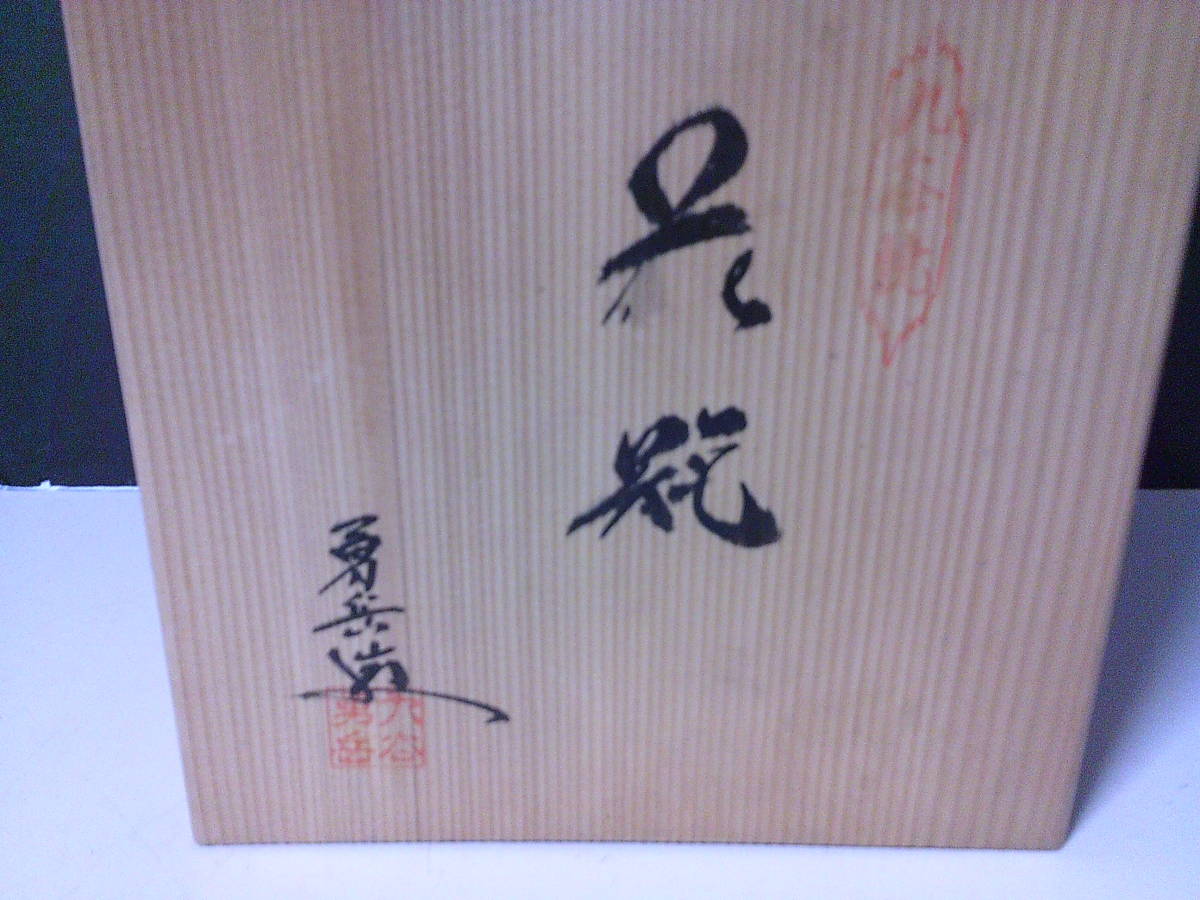 九谷焼
花瓶
勇岳作
九谷
勇岳